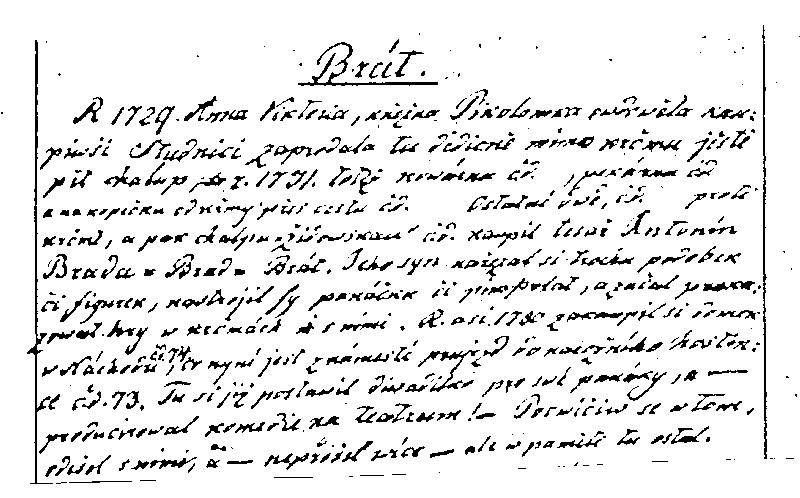 Brát.
R 1729. Anna Viktoria, kněžna Pikolomka owdowěla kau-
piwši Studnici zaprodala tu dědičně mimo krčmu ještě
pět chalup, r. 1731. totiž kowárna čd. , pekárna čd
a na kopečku od zimy přes cestu čd. Ostatní dwě, čd. proti
krčmě, a pak chalpu židowskau čd. kaupil tesař Antonín
Brada – Brad – Brát. Jeho syn nařezal si trochu podobek
či figurek, nastrojil jy panáčka či pimprlat, a začal prowa-
zowat hry w krčmách s nimi. R. asi 1780 zakaupil si domek
w Náchodě čd. 74, kde nyní jest z náměstí průjezd do kostelního
čd. 73. Tu si již postawil diwadélko pro swé panáky, a —
producirowal komedie na teatrum! — Pocwičiw se w tom,
odešel s nimi, a — nepřišel wíce — ale w paměti tu ostal.